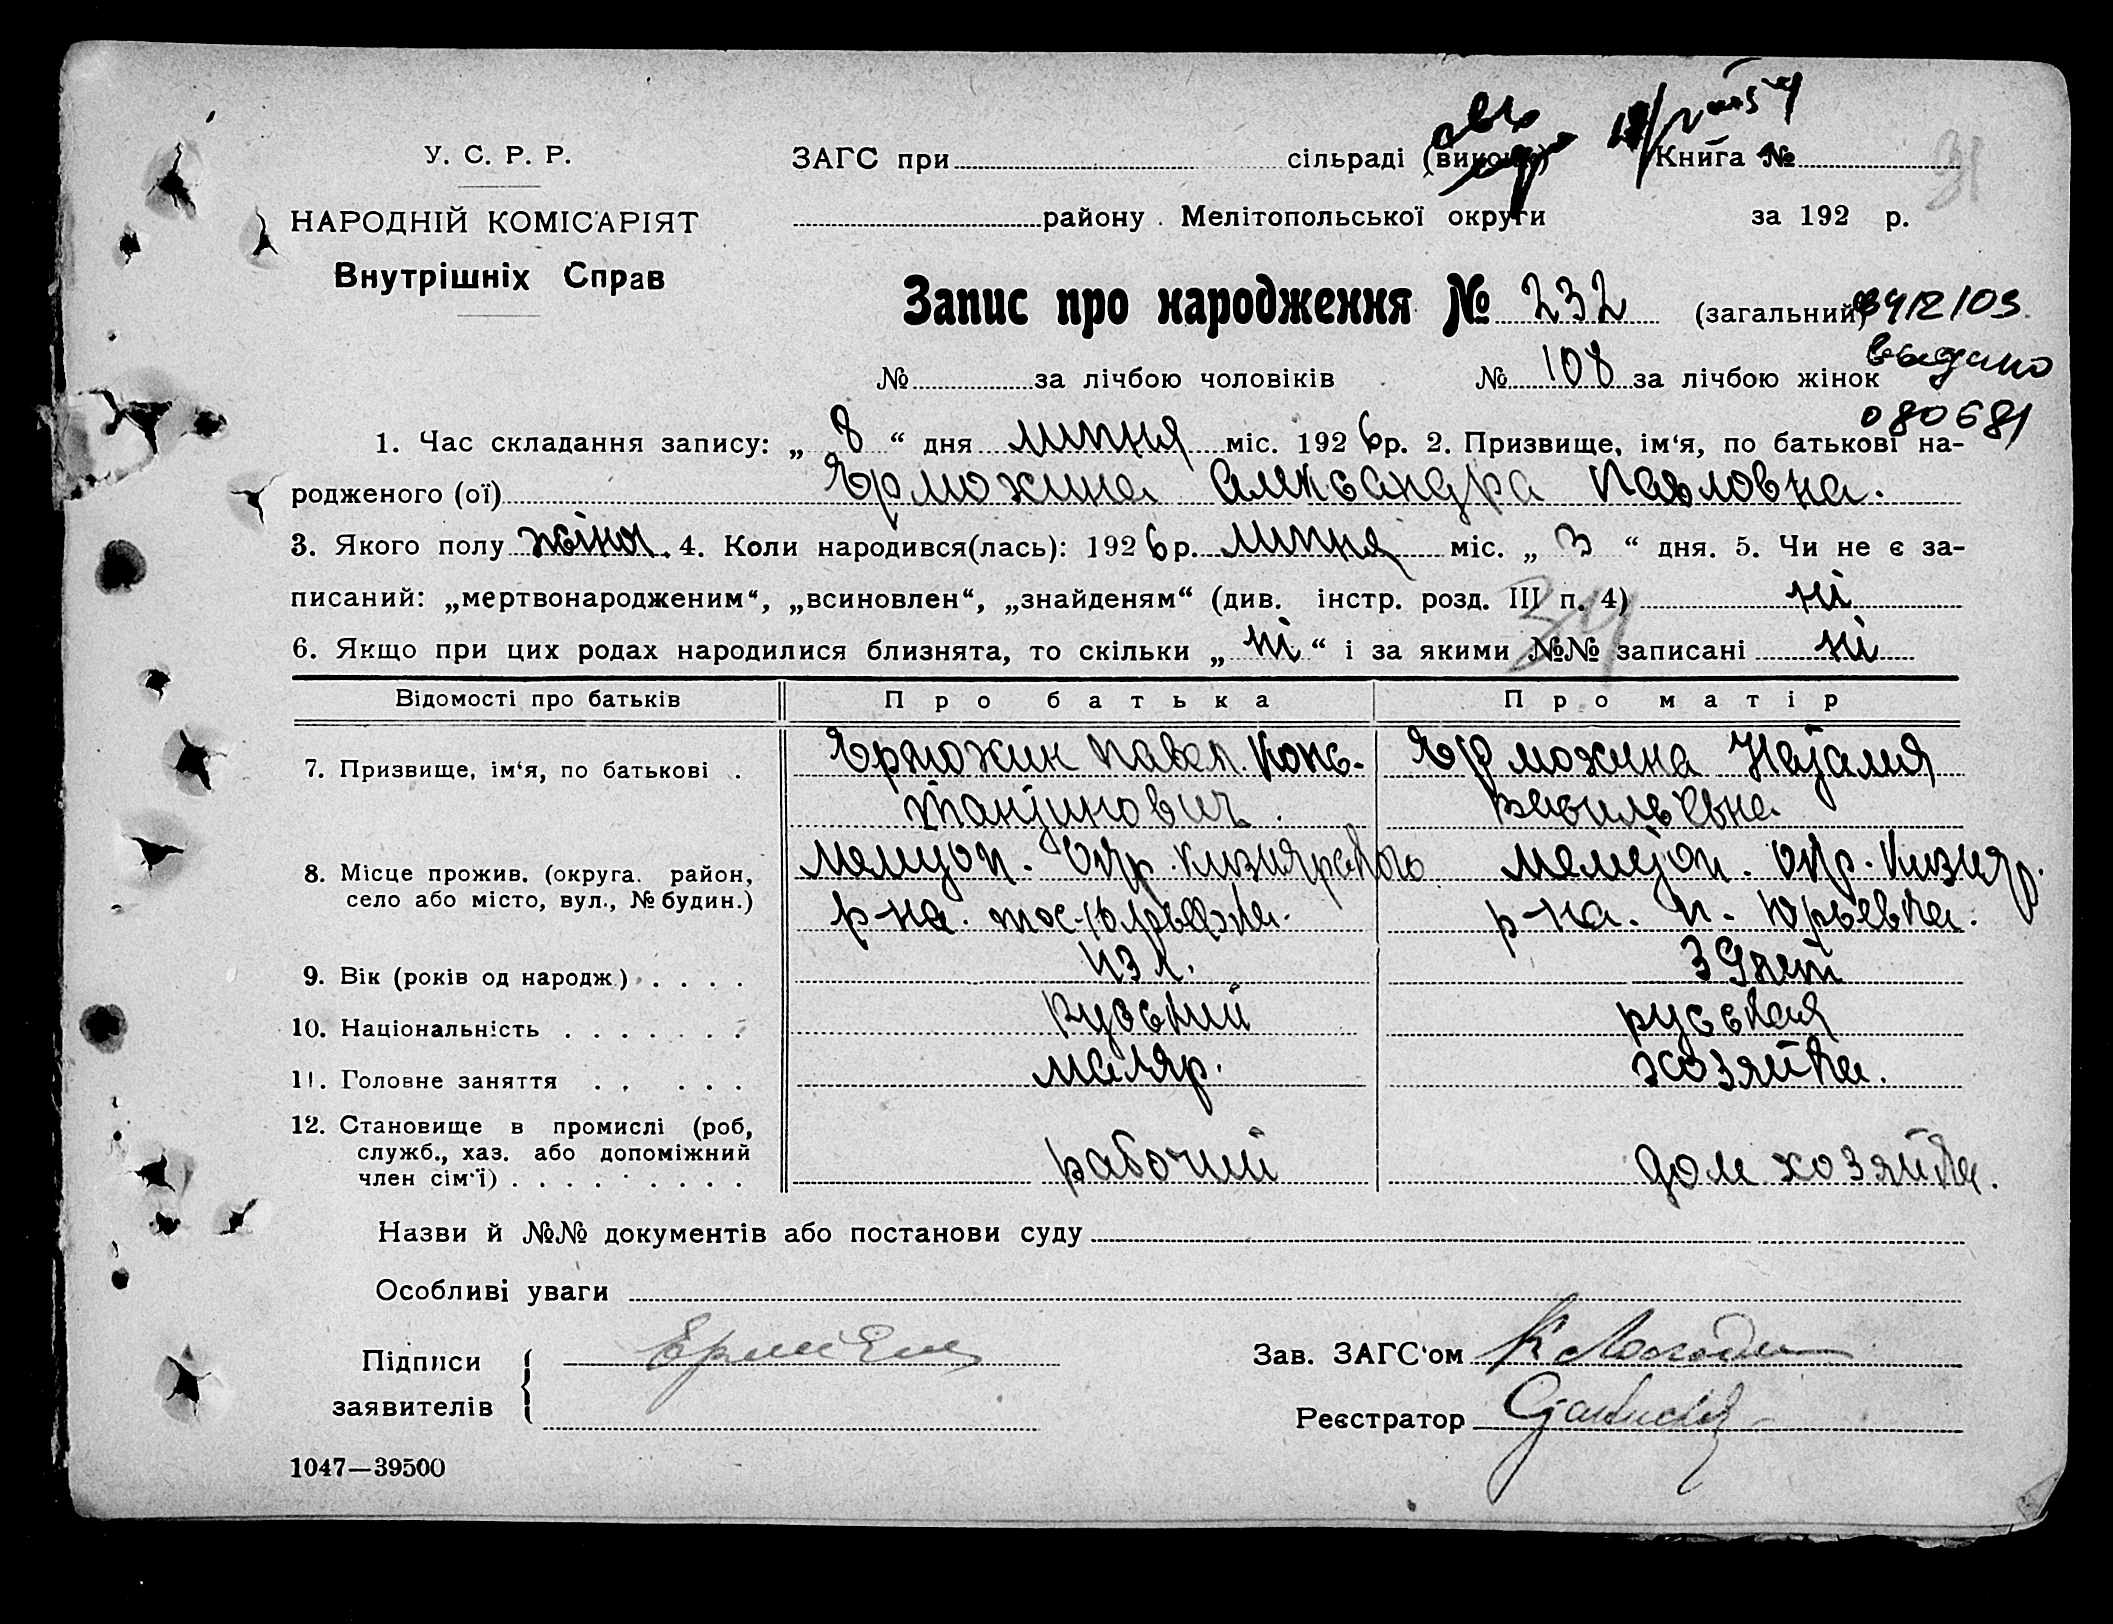 У. С. Р. Р.
НАРОДНІЙ КОМІСАРІЯТ
Внутрішніх Справ
ЗАГС при сільраді (викон Книга №
району Мелітопольської округи за 192 р.
31
Запис про народження № 232 (загальний) 412103
выдано
№ за лічбою чоловіків № 108 за лічбою жінок
080681
1. Час складання запису: „ 8 “ дня липня міс. 1926 р. 2. Призвище, ім‘я, по батькові на-
родженого (ої) Ярможина Александра Павловна.
3. Якого полу жіноч. 4. Коли народився(лась): 1926 р. липня міс. „ 3 “ дня. 5. Чи не є за-
писаний: „мертвонародженим“, „всиновлен“, „знайденям“ (див. інстр. розд. III п. 4) ні
34
6. Якщо при цих родах народилися близнята, то скільки „ ні “ і за якими №№ записані ні
Відомості про батьків Про батька Про матір
7. Призвище, ім‘я, по батькові Ярможин Павел Конс- Ярможина Наталия
тантинович. Васильевна
8. Місце прожив. (округа. район, село або місто, вул., № будин.) Мелитоп. Окр. Кизиярского Мелитоп. Окр. Кизияр.
р-на. р-на. п. Юрьевка.
9. Вік (років од народж) 43 л. 39 лет
10. Національність руський русская
11. Головне заняття маляр. хозяйка.
12. Становище в промислі (роб, служб., хаз. або допоміжний член сім‘ї) рабочий дом хозяйка.
Назви й №№ документів або постанови суду
Особливі уваги
Підписи
заявителів
Зав. ЗАГС‘ом
Реєстратор
1047—39500